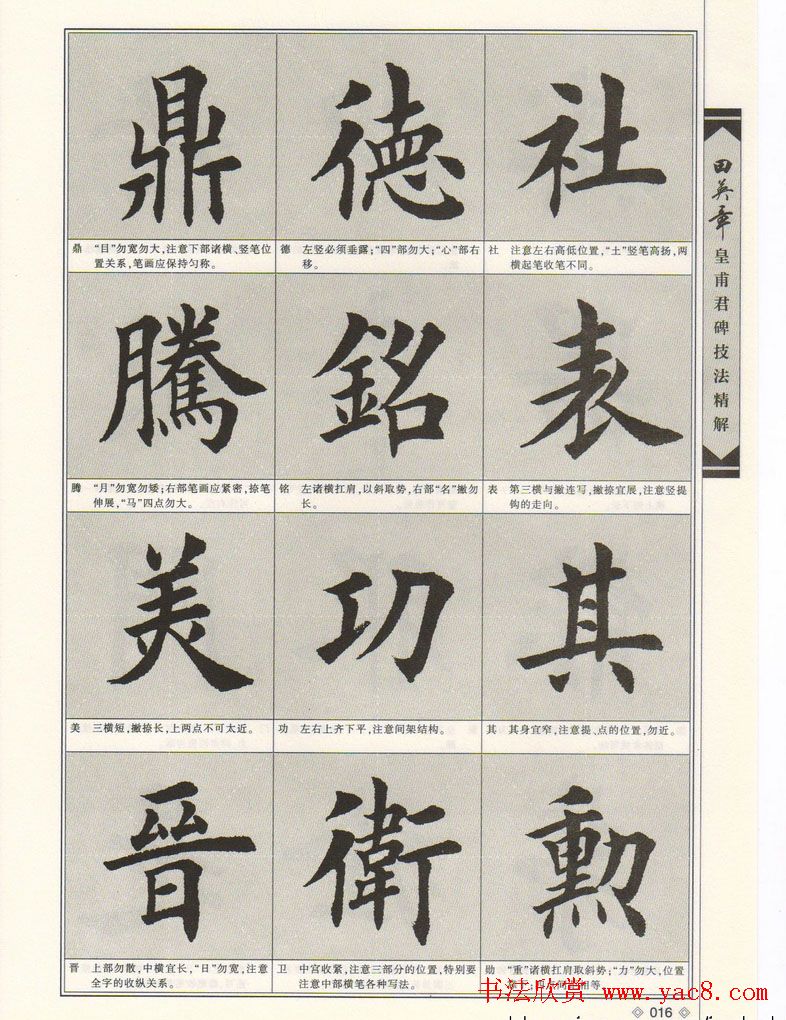 鼎
德
社
鼎 “目”勿宽勿大,注意下部诸横、竖笔位
置关系,笔画应保持匀称。
德 左竖必须垂露;“四”部勿大;“心”部右
移。
社 注意左右高低位置,“土”竖笔高扬,两
横起笔收笔不同。
騰
銘
表
腾 “月”勿宽勿矮;右部笔画应紧密,捺笔
伸展,“马”四点勿大。
铭 左诸横扛肩,以斜取势,右部“名”撇勿
长。
表 第三横与撇连写,撇捺宜展,注意竖提
钩的走向。
美
功
其
美 三横短,撇捺长,上两点不可太近。
功 左右上齐下平,注意间架结构。
其 其身宜窄,注意提、点的位置,勿近。
晉
衛
勳
晋 上部勿散,中横宜长,“日”勿宽,注意
全字的收纵关系。
卫 中宫收紧,注意三部分的位置,特别要
注意中部横笔各种写法。
勋 “重”诸横扛肩取斜势;“力”勿大,位置
相等
田英章
皇甫君碑技法精解
书法欣赏 www.yac8.com
016